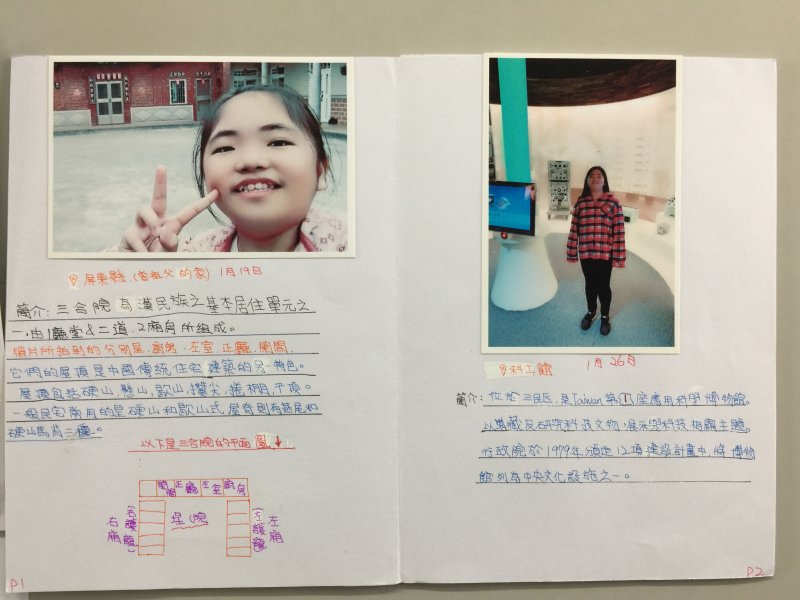 屏東縣(曾祖父的家) 1月19日
簡介:三合院為漢民族之基本居住單元之
一,由1廳堂&二道,2廂房所組成。
照片所拍到的分別是,廚房,左室,正廳,間間,
它們的屋頂是中國傳統住宅建築的另一特色。
屋頂包括硬山,懸山,歇山,攢尖,捲棚,平頂。
一般民宅常用的是硬山和歇山式,屋脊則有燕尾和
硬山馬背二種。
以下是三合院的平面圖
間間 正廳 左室 廚房
右廂(右護龍)
埕院
左廂(左護龍)
P1
科工館
1月26日
簡介:位於三民區,是Taiwan第1座應用科學博物館,
以蒐藏及研究科技文物,展示與科技相關主題
行政院於1979年頒定12項建設計畫中,將博物
館列為中央文化設施之一。
P2